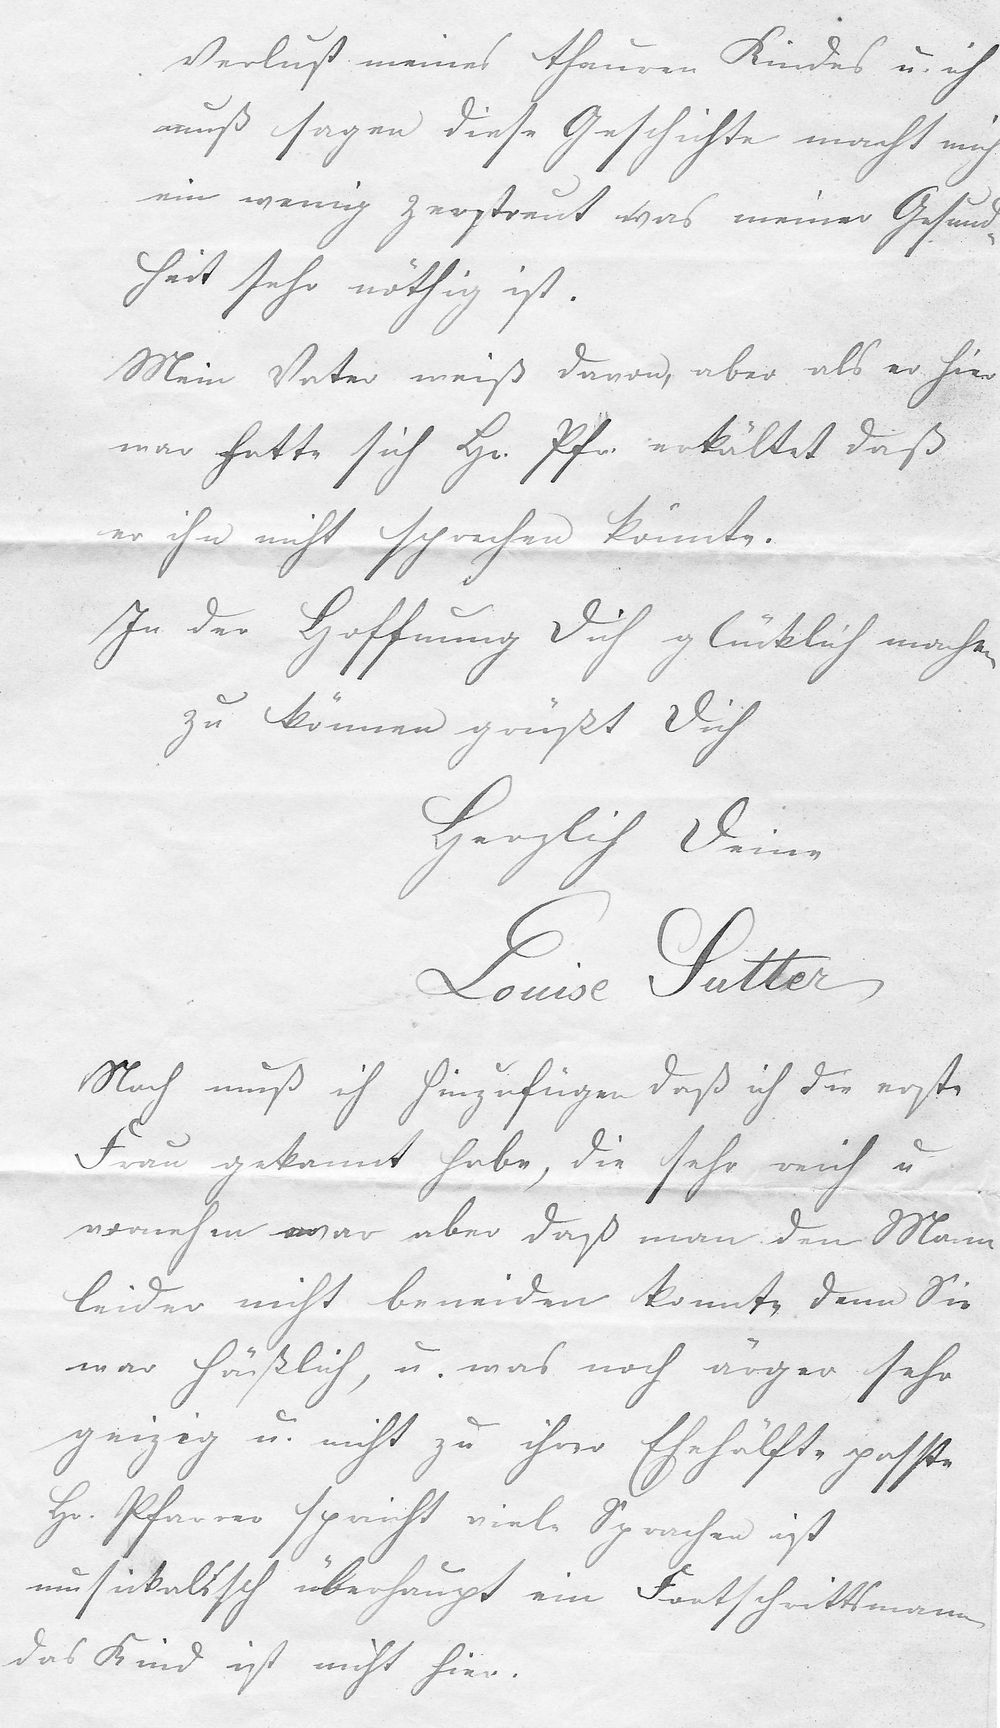 Verlust meines theuren Kindes u. ich
muß sagen diese Geschichte macht mich
ein wenig zerstreut was meiner Gesund-
heit sehr nöthig ist.
Mein Vater weiß davon, aber als er hier
war hatte sich Hr. Pfr. erkältet daß
er ihn nicht sprechen konnte.
In der Hoffnung Dich glücklich machen
zu können grüßt Dich
Herzlich Deine
Louise Sutter
Noch muß ich hinzufügen daß ich die erste
Frau gekannt habe, die sehr reich u
vornehm war aber daß man den Mann
leider nicht beneiden konnte denn Sie
war häßlich, u. was noch ärger sehr
geizig u. nicht zu ihrer Ehehälfte passte
Hr. Pfarrer spricht viele Sprachen ist
musikalisch überhaupt ein Fortschrittsmann
das Kind ist nicht hier.